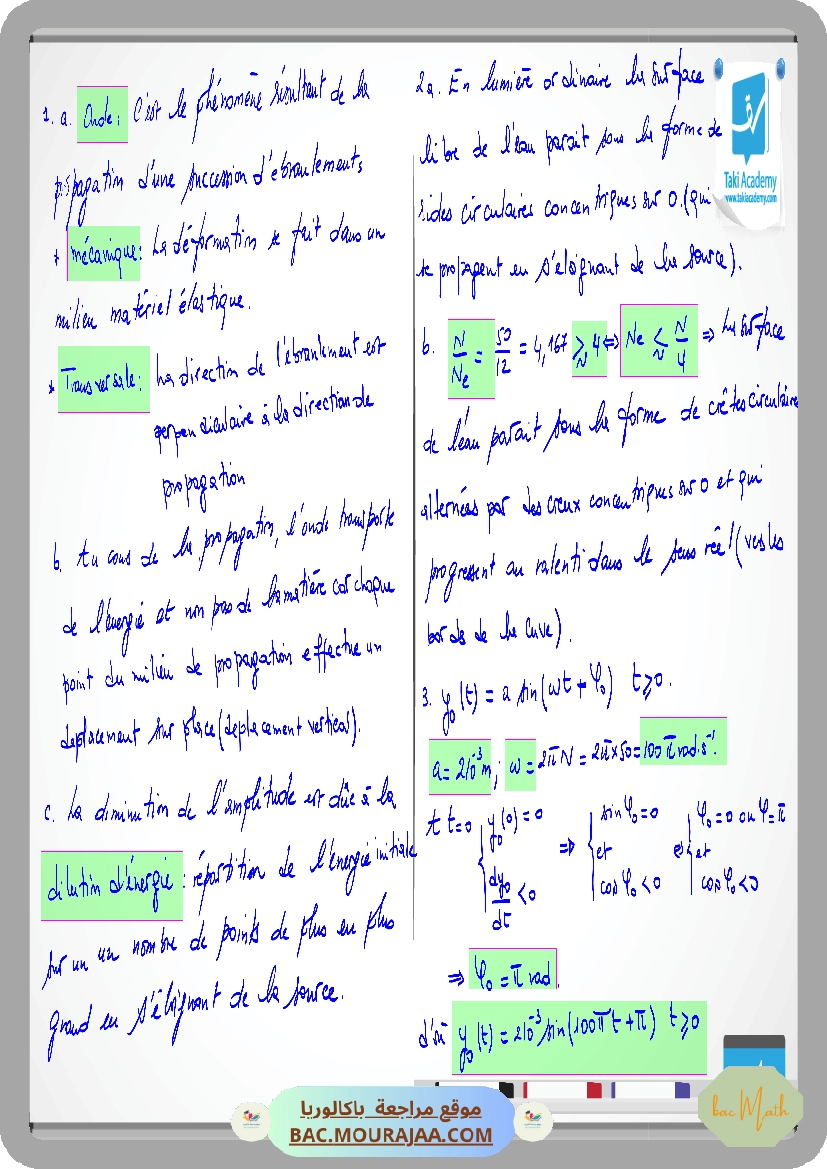 1. a. Onde : C'est le phénomène résultant de la
propagation d'une succession d'ébranlements
* mécanique : La déformation se fait dans un
milieu matériel élastique.
* Transversale : La direction de l'ébranlement est
perpendiculaire à la direction de
propagation
b. Au cours de la propagation, l'onde transporte
de l'énergie et non pas de la matière car chaque
point du milieu de propagation effectue un
deplacement sur place (deplacement vertical).
c. La diminution de l'amplitude est dûe à la
dilution d'énergie : répartition de l'énergie initiale
sur un un nombre de points de plus en plus
grand en s'éloignant de la source.
2a. En lumière ordinaire la surface
libre de l'eau parait sous la forme de
rides circulaires concentriques sur O. (qui
se propagent en s'éloignant de la source).
b. N/Ne = 50/12 = 4,167 ⩾ 4 ⇔ Ne ⩽ N/4 ⇒ La surface
de l'eau parait sous la forme de crêtes circulaires
alternées par des creux concentriques sur O et qui
progressent au ralenti dans le sens réel (vers les
bords de la cuve).
3. y₀(t) = a sin(ωt + φ₀) t ⩾ 0.
a = 2 10⁻³ m ; ω = 2πN = 2π×50 = 100 π rad.s⁻¹.
A t=0 { y₀(0) = 0 ; dy₀/dt < 0 ⇒ { sin φ₀ = 0 et cos φ₀ < 0 ⇔ { φ₀ = 0 ou φ₀ = π et cos φ₀ < 0
⇒ φ₀ = π rad.
d'où y₀(t) = 2 10⁻³ sin(100πt + π) t ⩾ 0
Taki Academy
www.takiacademy.com
موقع مراجعة باكالوريا
BAC.MOURAJAA.COM
bac Math